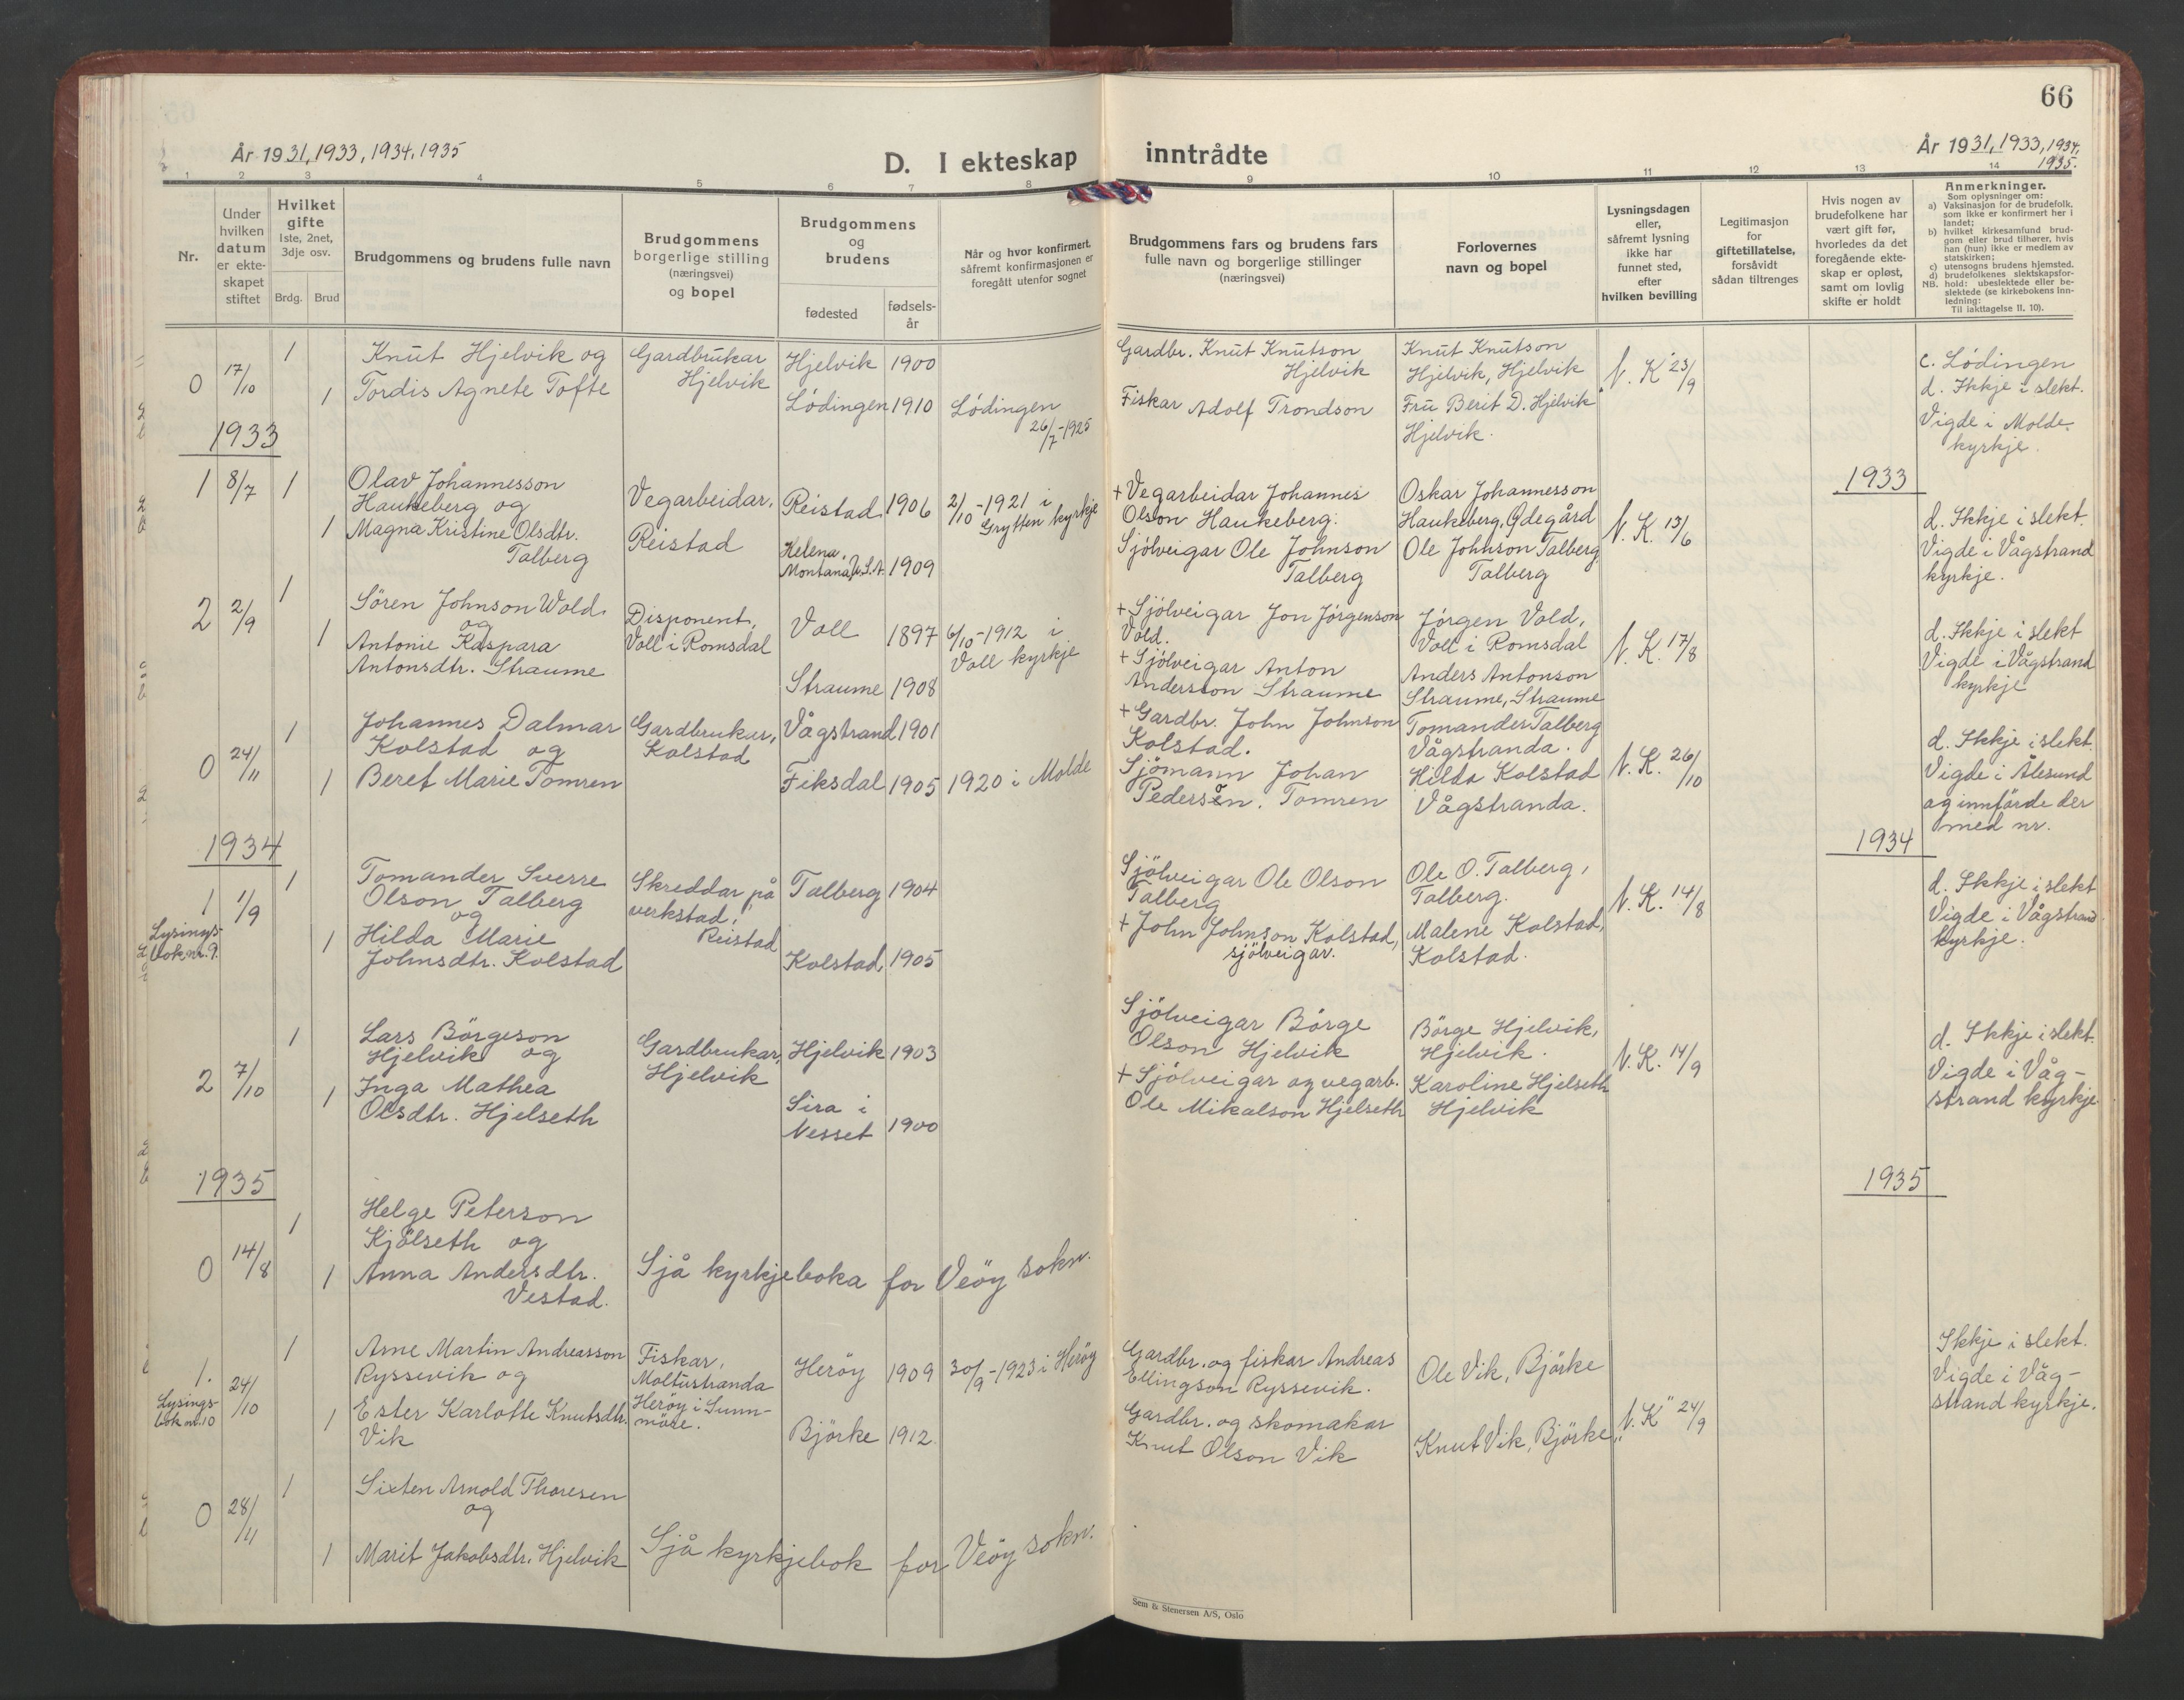 66
År 1931, 1933, 1934, 1935
D. I ekteskap
inntrådte
År 1931, 1933, 1934,
1935.
1 2 3 4 5 6 7 8 9 10 11 12 13 14
Nr.
Under
hvilken
datum
er ekte-
skapet
stiftet
Hvilket
gifte
1ste, 2net,
3dje osv.
Brdg. Brud
Brudgommens og brudens fulle navn
Brudgommens
borgerlige stilling
(næringsvei)
og bopel
Brudgommens
og
brudens
fødested
fødsels-
år
Når og hvor konfirmert,
såfremt konfirmasjonen er
foregått utenfor sognet
Brudgommens fars og brudens fars
fulle navn og borgerlige stillinger
(næringsvei)
Forlovernes
navn og bopel
Lysningsdagen
eller,
såfremt lysning
ikke har
funnet sted,
efter
hvilken bevilling
Legitimasjon
for
giftetillatelse,
forsåvidt
sådan tiltrenges
Hvis nogen av
brudefolkene har
vært gift før,
hvorledes da det
foregående ekte-
skap er opløst,
samt om lovlig
skifte er holdt
Anmerkninger.
Som oplysninger om:
a) Vaksinasjon for de brudefolk,
som ikke er konfirmert her i
landet;
b) hvilket kirkesamfund brud-
gom eller brud tilhører, hvis
han (hun) ikke er medlem av
statskirken;
c) utensogns brudens hjemsted.
d) brudefolkenes slektskapsfor-
NB. hold: ubeslektede eller be-
slektede (se kirkebokens inn-
ledning:
Til iakttagelse II. 10).
0 17/10 1
1
Knut Hjelvik og
Tordis Agnete Tofte
Gardbrukar
Hjelvik
Hjelvik 1900
Lödingen 1910
Lödingen
26/7-1925
Gardbr. Knut Knutson
Hjelvik
Fiskar Adolf Trondson
Knut Knutson
Hjelvik, Hjelvik
Fru Berit D. Hjelvik
Hjelvik.
N. K. 23/9
c. Lödingen
d. Ikkje i slekt.
Vigde i Molde
kyrkje.
1933
1933
1 8/7 1
1
Olav Johannesson
Haukeberg og
Magna Kristine Olsdtr.
Talberg
Vegarbeidar,
Reistad
Reistad 1906
Helena,
Montana, U.S.A. 1909
2/10-1921 i
Grytten kyrkje
+ Vegarbeidar Johannes
Olson Haukeberg.
Sjölveigar Ole Johnson
Talberg
Oskar Johannesson
Haukeberg, Ödegård
Ole Johnson Talberg,
Talberg
N. K. 13/6
d. Ikkje i slekt.
Vigde i Vågstrand
kyrkje.
2 2/9 1
1
Sören Johnson Wold
og
Antonie Kaspara
Antonsdtr. Straume
Disponent,
Voll i Romsdal
Voll 1897
Straume 1908
6/10-1912 i
Voll kyrkje
+ Sjölveigar Jon Jörgenson
Vold.
+ Sjölveigar Anton
Andersson Straume
Jörgen Vold,
Voll i Romsdal
Anders Antonson
Straume, Straume
N. K. 17/8
d. Ikkje i slekt
Vigde i Vågstrand
kyrkje
0 24/11 1
1
Johannes Dalmar
Kolstad og
Beret Marie Tomren
Gardbrukar,
Kolstad
Vågstrand 1901
Fiksdal 1905
1920 i Molde
+ Gardbr. John Johnson
Kolstad.
Sjömann Johan
Pedersön. Tomren
Tomander Talberg
Vågstranda.
Hilda Kolstad
Vågstranda.
N. K. 26/10
d. Ikkje i slekt.
Vigde i Ålesund
og innförde der
med nr.
1934
1934
1 1/9 1
Lysings-
bok nr. 9.
1
Tomander Sverre
Olson Talberg
og
Hilda Marie
Johnsdtr. Kolstad
Skreddar på
verkstad,
Reistad
Talberg 1904
Kolstad, 1905
Sjölveigar Ole Olson
Talberg
+ John Johnson Kolstad,
sjölveigar.
Ole O. Talberg,
Talberg.
Malene Kolstad,
Kolstad.
N. K. 14/8
d. Ikkje i slekt
Vigde i Vågstrand
kyrkje.
2 7/10 1
1
Lars Börgeson
Hjelvik og
Inga Mathea
Olsdtr. Hjelseth
Gardbrukar,
Hjelvik
Hjelvik 1903
Sira i
Nesset 1900
Sjölveigar Börge
Olson Hjelvik
+ Sjölveigar og vegarb.
Ole Mikalson Hjelseth
Börge Hjelvik,
Hjelvik.
Karoline Hjelseth
Hjelvik
N. K. 14/9
d. Ikkje i slekt.
Vigde i Våg-
strand kyrkje.
1935
1935
0 14/8 1
1
Helge Peterson
Kjölseth og
Anna Andersdtr.
Vestad.
Sjå kyrkjeboka for Veöy sokn.
1. 24/10 1
Lysings-
bok nr. 10
1
Arne Martin Andreasson
Ryssevik og
Ester Karlotte Knutsdtr.
Vik
Fiskar,
Moltustranda
Heröy i Sunn-
möre.
Heröy 1909
Björke 1912.
30/9-1923 i Heröy
Gardbr. og fiskar Andreas
Ellingson Ryssevik.
Gardbr. og skomakar
Knut Olson Vik
Ole Vik, Björke
Knut Vik, Björke
"N. K" 24/9
Ikkje i slekt.
Vigde i Våg-
strand kyrkje.
0 28/11 1
1
Sixten Arnold Thoresen
og
Marit Jakobsdtr. Hjelvik
Sjå kyrkjebok for Veöy sokn.
Sem & Stenersen A/S, Oslo